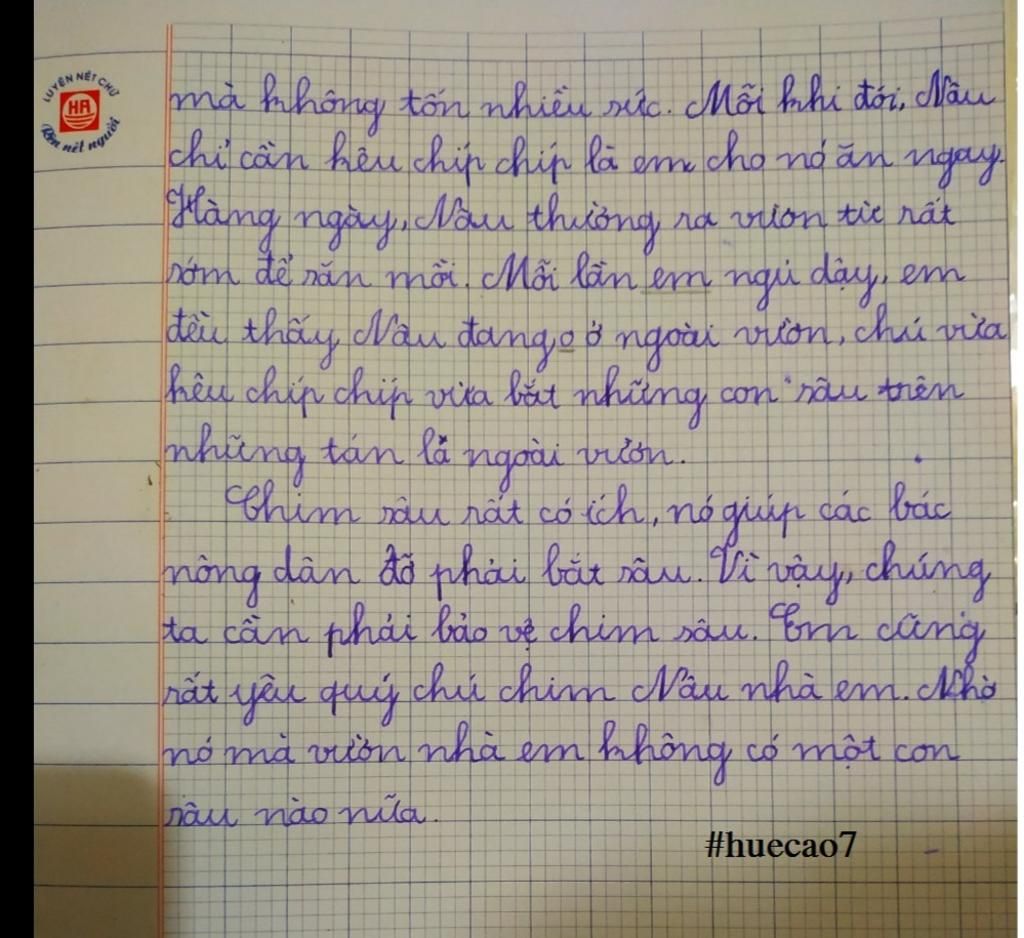 LUYỆN NÉT CHỮ
HA
Rèn nết người
mà không tốn nhiều sức. Mỗi khi đói, Nâu
chỉ cần kêu chíp chíp là em cho nó ăn ngay.
Hàng ngày, Nâu thường ra vườn từ rất
sớm để săn mồi. Mỗi lần em ngủ dậy, em
đều thấy Nâu đang o ở ngoài vườn, chú vừa
kêu chíp chíp vừa bắt những con sâu trên
những tán lá ngoài vườn.
Chim sâu rất có ích, nó giúp các bác
nông dân đỡ phải bắt sâu. Vì vậy, chúng
ta cần phải bảo vệ chim sâu. Em cũng
rất yêu quý chú chim Nâu nhà em. Nhờ
nó mà vườn nhà em không có một con
sâu nào nữa.
#huecao7